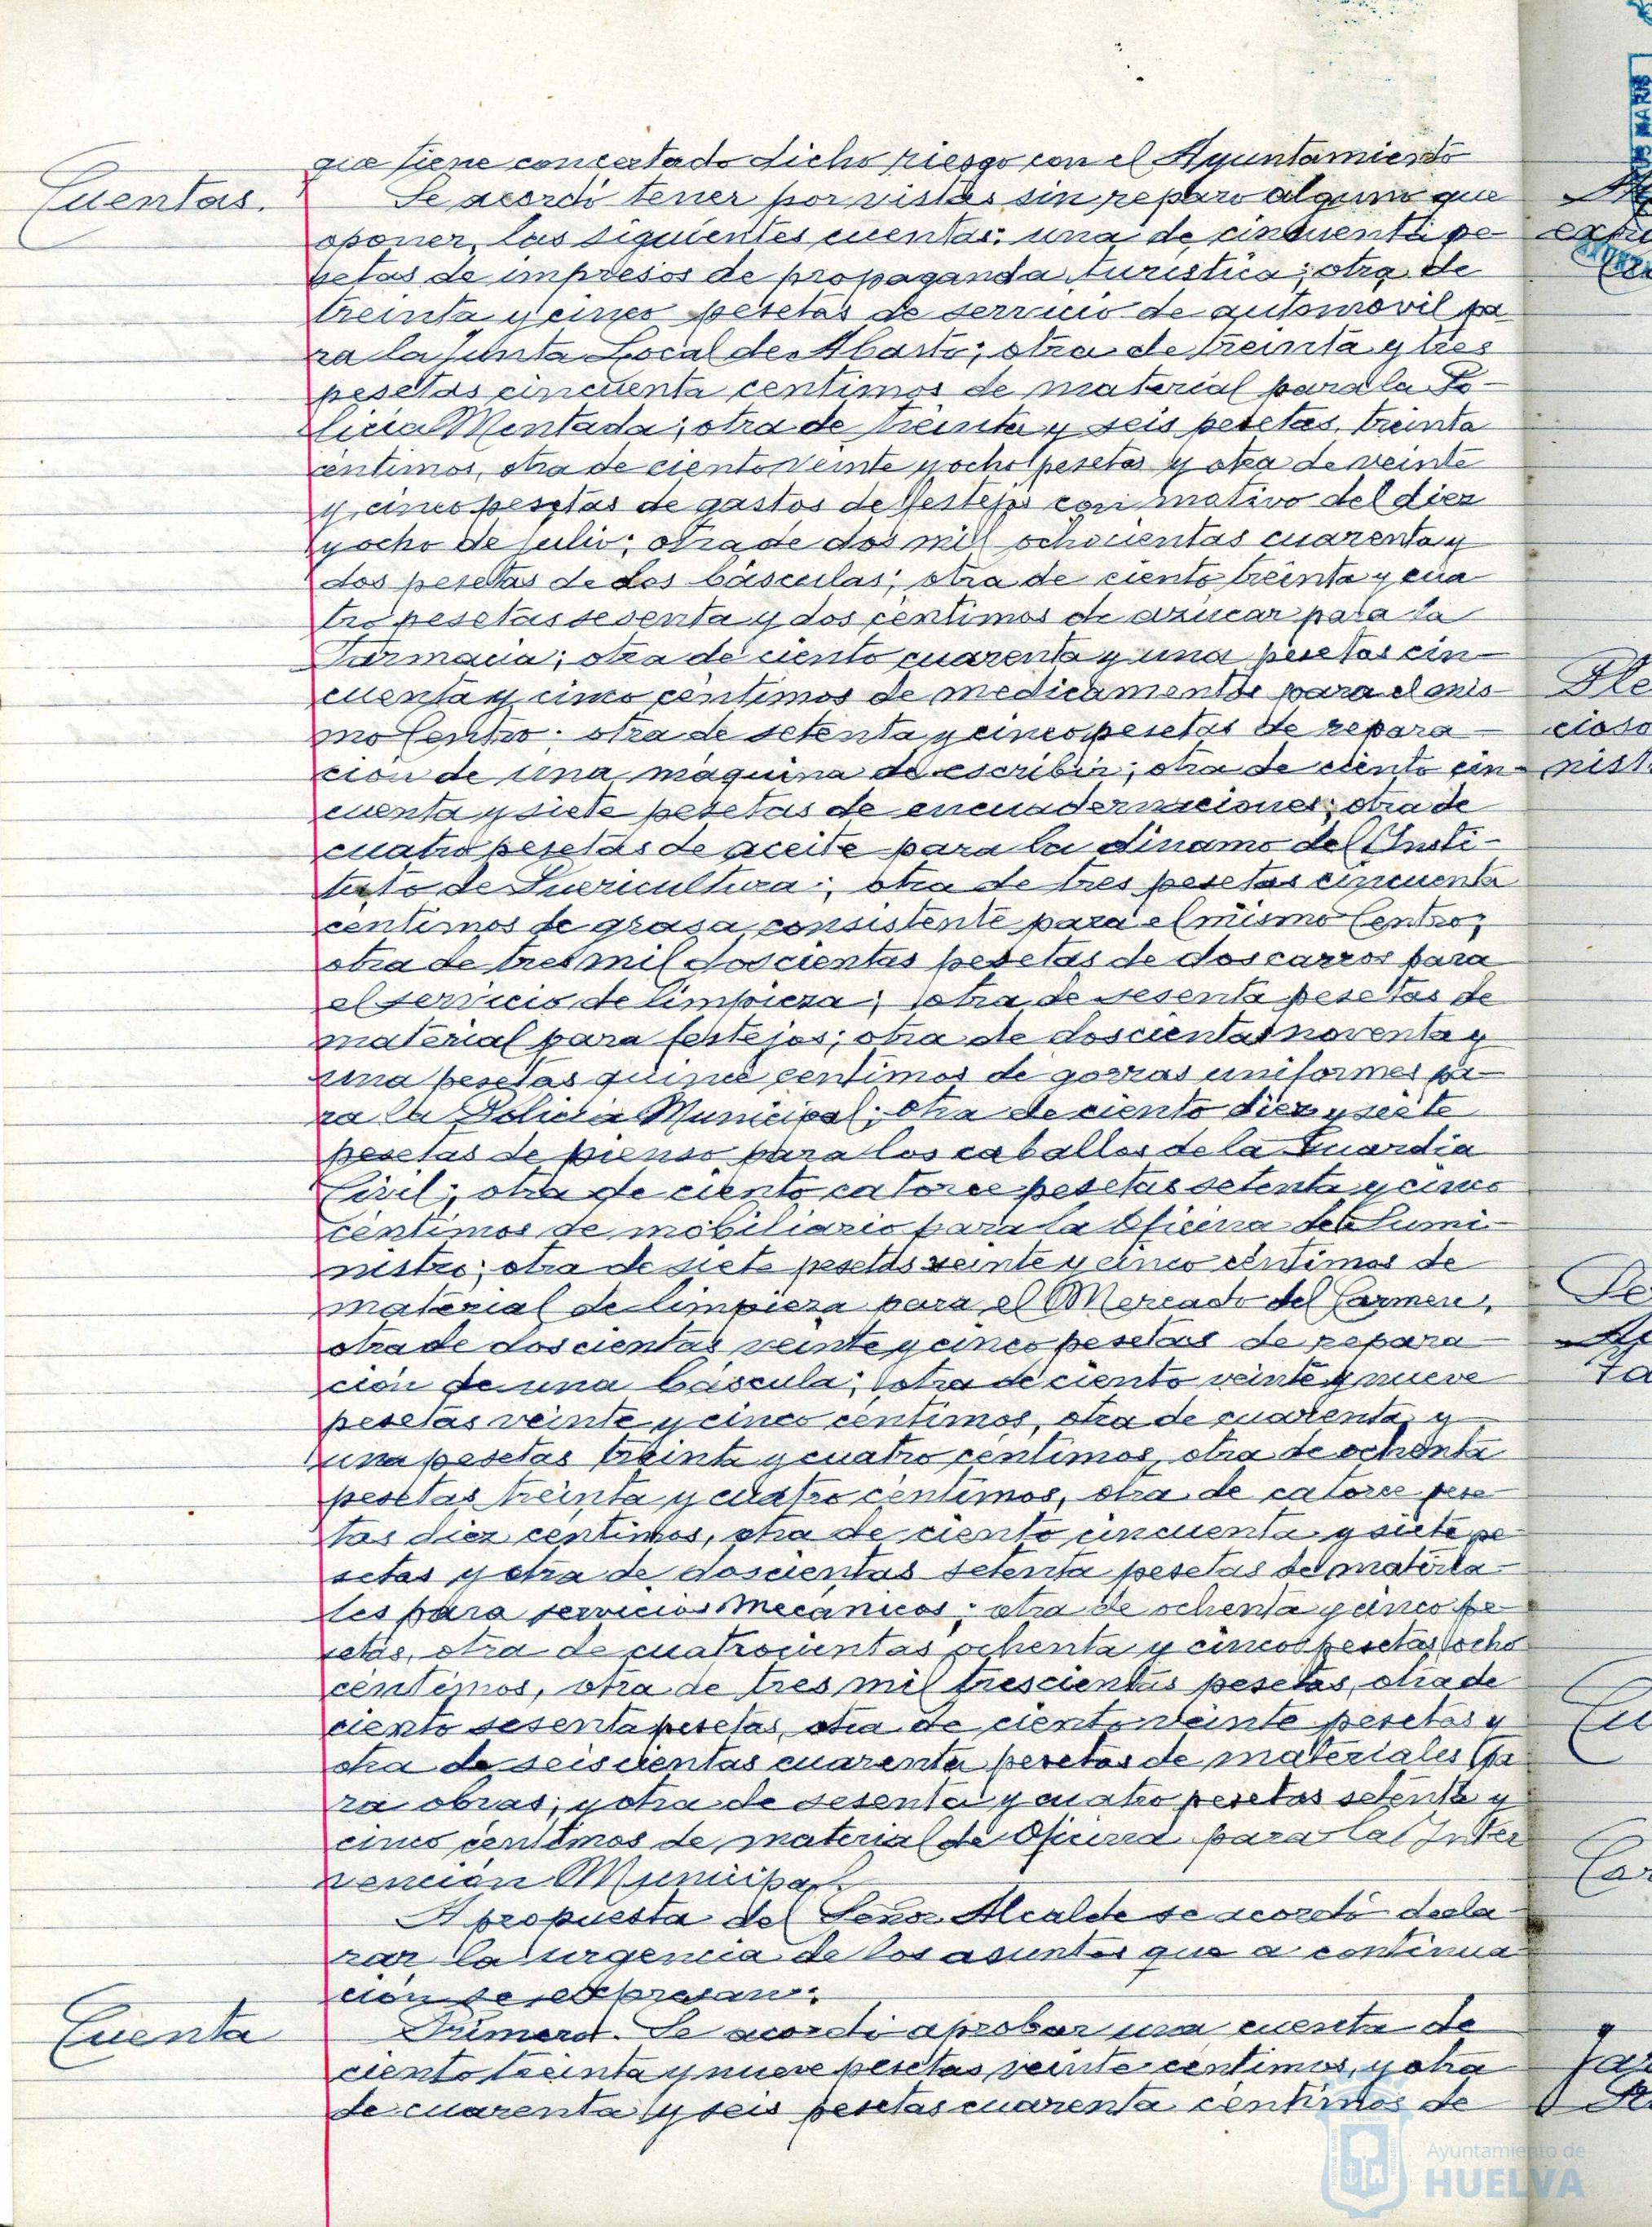 que tiene concertado dicho riesgo con el Ayuntamiento
Cuentas.
Se acordó tener por vistas sin reparo alguno que
oponer, las siguientes cuentas: una de cincuenta pe-
setas de impresos de propaganda turística; otra de
treinta y cinco pesetas de servicio de automovil pa
ra la Junta Local de Abasto; otra de treinta y tres
pesetas cincuenta centimos de material para la Po-
licia Montada; otra de treinta y seis pesetas, treinta
centimos, otra de ciento veinte y ocho pesetas y otra de veinte
y cinco pesetas de gastos de festejos con motivo del diez
y ocho de julio; otra de dos mil ochocientas cuarenta y
dos pesetas de dos básculas; otra de ciento treinta y cua
tro pesetas sesenta y dos céntimos de azúcar para la
Farmacia; otra de ciento cuarenta y una pesetas cin-
cuenta y cinco céntimos de medicamentos para el mis-
mo Centro; otra de setenta y cinco pesetas de repara-
ción de una máquina de escribir; otra de ciento cin-
cuenta y siete pesetas de encuadernaciones; otra de
cuatro pesetas de aceite para la dinamo del Insti-
tuto de Puericultura; otra de tres pesetas cincuenta
centimos de grasa consistente para el mismo Centro;
otra de tres mil doscientas pesetas de dos carros para
el servicio de limpieza; otra de sesenta pesetas de
material para festejos; otra de doscientas noventa y
una pesetas quince centimos de gorras uniformes pa-
ra la Policia Municipal; otra de ciento diez y siete
pesetas de pienso para los caballos de la Guardia
Civil; otra de ciento catorce pesetas setenta y cinco
céntimos de mobiliario para la Oficina de Sumi-
nistro; otra de siete pesetas veinte y cinco céntimos de
material de limpieza para el Mercado del Carmen;
otra de doscientas veinte y cinco pesetas de repara-
ción de una báscula; otra de ciento veinte y nueve
pesetas veinte y cinco céntimos, otra de cuarenta y
una pesetas treinta y cuatro céntimos, otra de ochenta
pesetas treinta y cuatro céntimos, otra de catorce pese-
tas diez céntimos, otra de ciento cincuenta y siete pe-
setas y otra de doscientas setenta pesetas de materia-
les para servicios mecánicos; otra de ochenta y cinco pe-
setas, otra de cuatrocientas ochenta y cinco pesetas ocho
céntimos, otra de tres mil trescientas pesetas, otra de
ciento sesenta pesetas, otra de ciento veinte pesetas y
otra de seiscientas cuarenta pesetas de materiales pa
ra obras; y otra de sesenta y cuatro pesetas setenta y
cinco céntimos de material de Oficina para la Inter
vención Municipal.
A propuesta del Señor Alcalde se acordó decla-
rar la urgencia de los asuntos que a continua-
ción se expresan:
Cuenta
Primero. Se acordó aprobar una cuenta de
ciento treinta y nueve pesetas veinte centimos, y otra
de cuarenta y seis pesetas cuarenta céntimos de
Ayuntamiento de
HUELVA